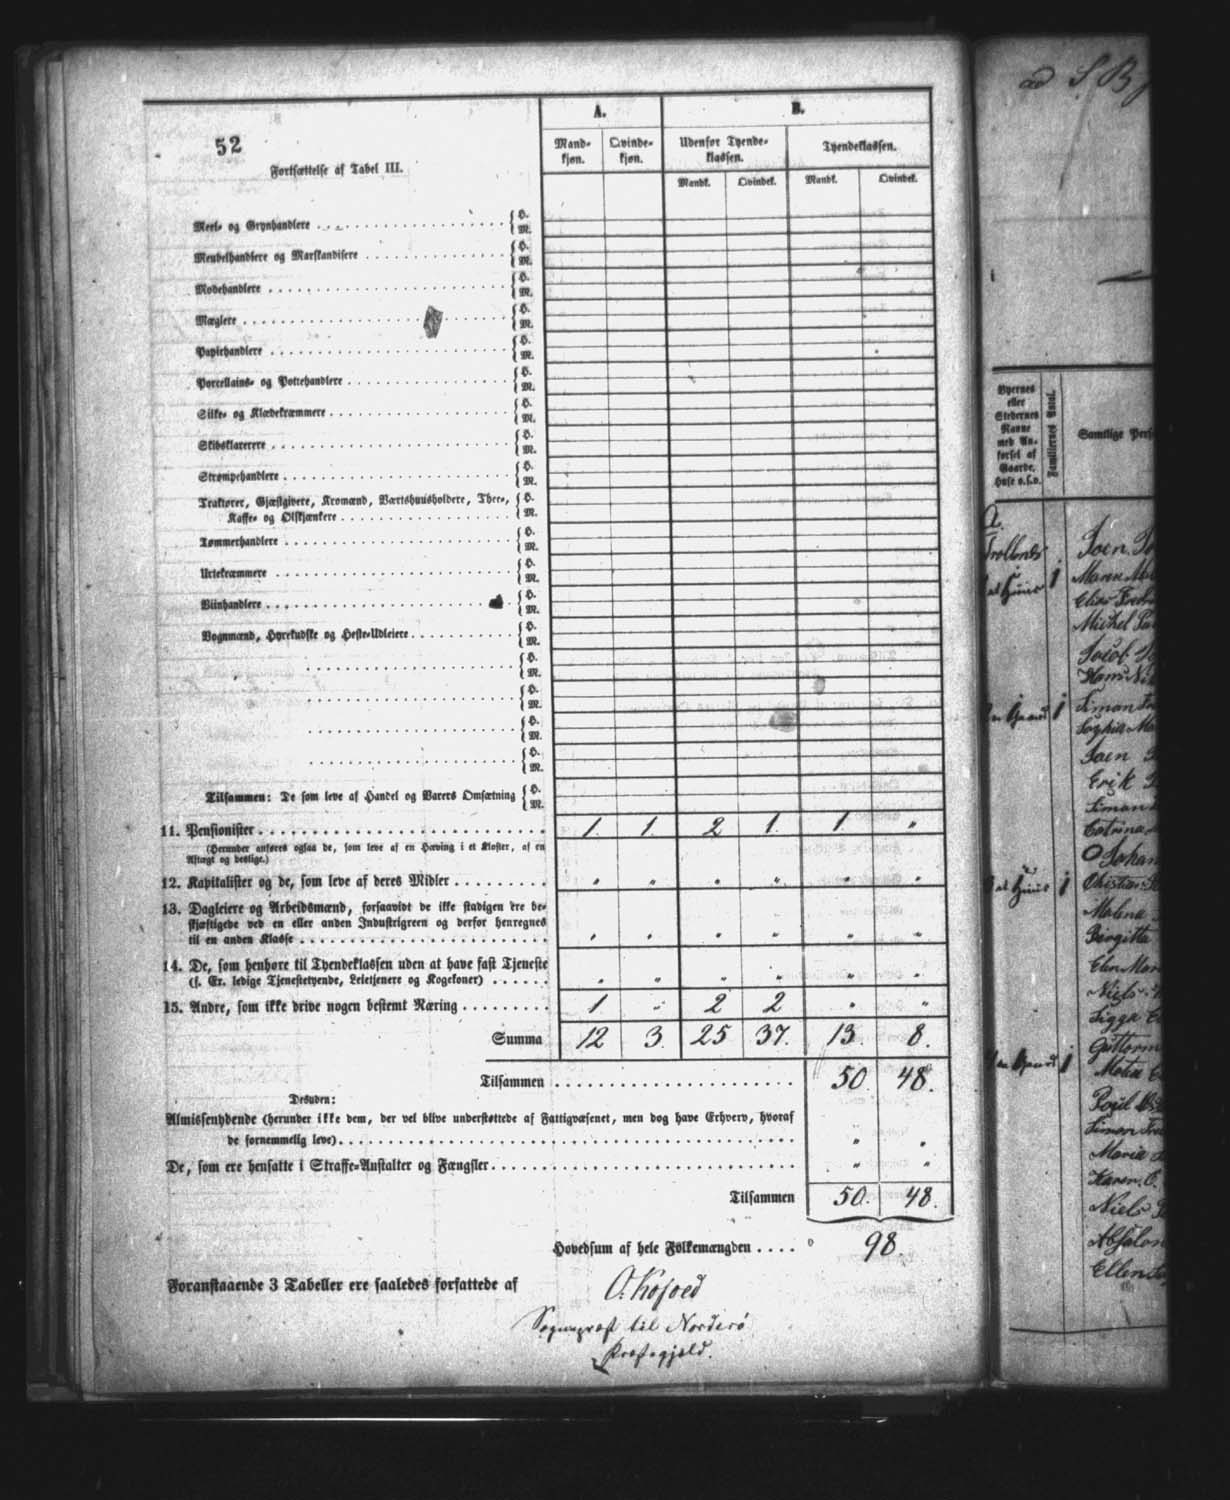 52
Fortsættelse af Tabel III.
A.
B.
Mand-
kjøn.
Qvinde-
kjøn.
Udenfor Tyende-
klassen.
Tyendeklassen.
Mandk. Qvindek. Mandk. Qvindek.
Meel- og Grynhandlere { H. M.
Meubelhandlere og Marskandisere { H. M.
Modehandlere { H. M.
Mæglere { H. M.
Papirhandlere { H. M.
Porcellains- og Pottehandlere { H. M.
Silke- og Klædekræmmere { H. M.
Skibsklarerere { H. M.
Strømpehandlere { H. M.
Traktører, Gjæstgivere, Kromænd, Værtshuusholdere, Thee-,
Kaffe- og Ølskjænkere { H. M.
Tømmerhandlere { H. M.
Urtekræmmere { H. M.
Viinhandlere { H. M.
Vognmænd, Hyrekudske og Heste-Udleiere { H. M.
{ H. M.
{ H. M.
{ H. M.
{ H. M.
Tilsammen: De som leve af Handel og Varers Omsætning { H. M.
11. Pensionister 1. 1. 2 1. 1. "
(Herunder anføres ogsaa de, som leve af en Hæving i et Kloster, af en
Aftægt og deslige.)
12. Kapitalister og de, som leve af deres Midler " " " " " "
13. Dagleiere og Arbeidsmænd, forsaavidt de ikke stadigen ere be-
skjæftigede ved en eller anden Industrigreen og derfor henregnes
til en anden Klasse " " " " " "
14. De, som henhøre til Tyendeklassen uden at have fast Tjeneste
(s. Ex. ledige Tjenestetyende, Leietjenere og Kogekoner) " " " " " "
15. Andre, som ikke drive nogen bestemt Næring 1 " 2 2 " "
Summa 12 3. 25 37. 13. 8.
Tilsammen 50. 48.
Desuden:
Almissenydende (herunder ikke dem, der vel blive understøttede af Fattigvæsenet, men dog have Erhverv, hvoraf
de fornemmelig leve) " "
De, som ere hensatte i Straffe-Anstalter og Fængsler " "
Tilsammen 50. 48.
Hovedsum af hele Folkemængden 98.
Foranstaaende 3 Tabeller ere saaledes forfattede af O. Kofoed
Sognepræst til Norderø
Præstegjæld.
ad S. B
Byernes
eller
Stedernes
Navne
med An-
førsel af
Gaarde,
Huse o.s.v.
Familiernes Antal.
Samtlige Pers
A.
Trollenes
et Huus 1
Joen
Maren
Elias Fred
Michel
Jacob
Hans Ni
en Gaard 1
Simon
Sophie Ma
Joen
Erik
Simon
Catrina
Johan
et Huus 1
Christian
Malena
Birgitta
Elen Mar
Niels
Sigga
en Gaard 1
Guttorm
Poul
Simon Fre
Maria
Karen. C.
Niels
Absalon
Ellen